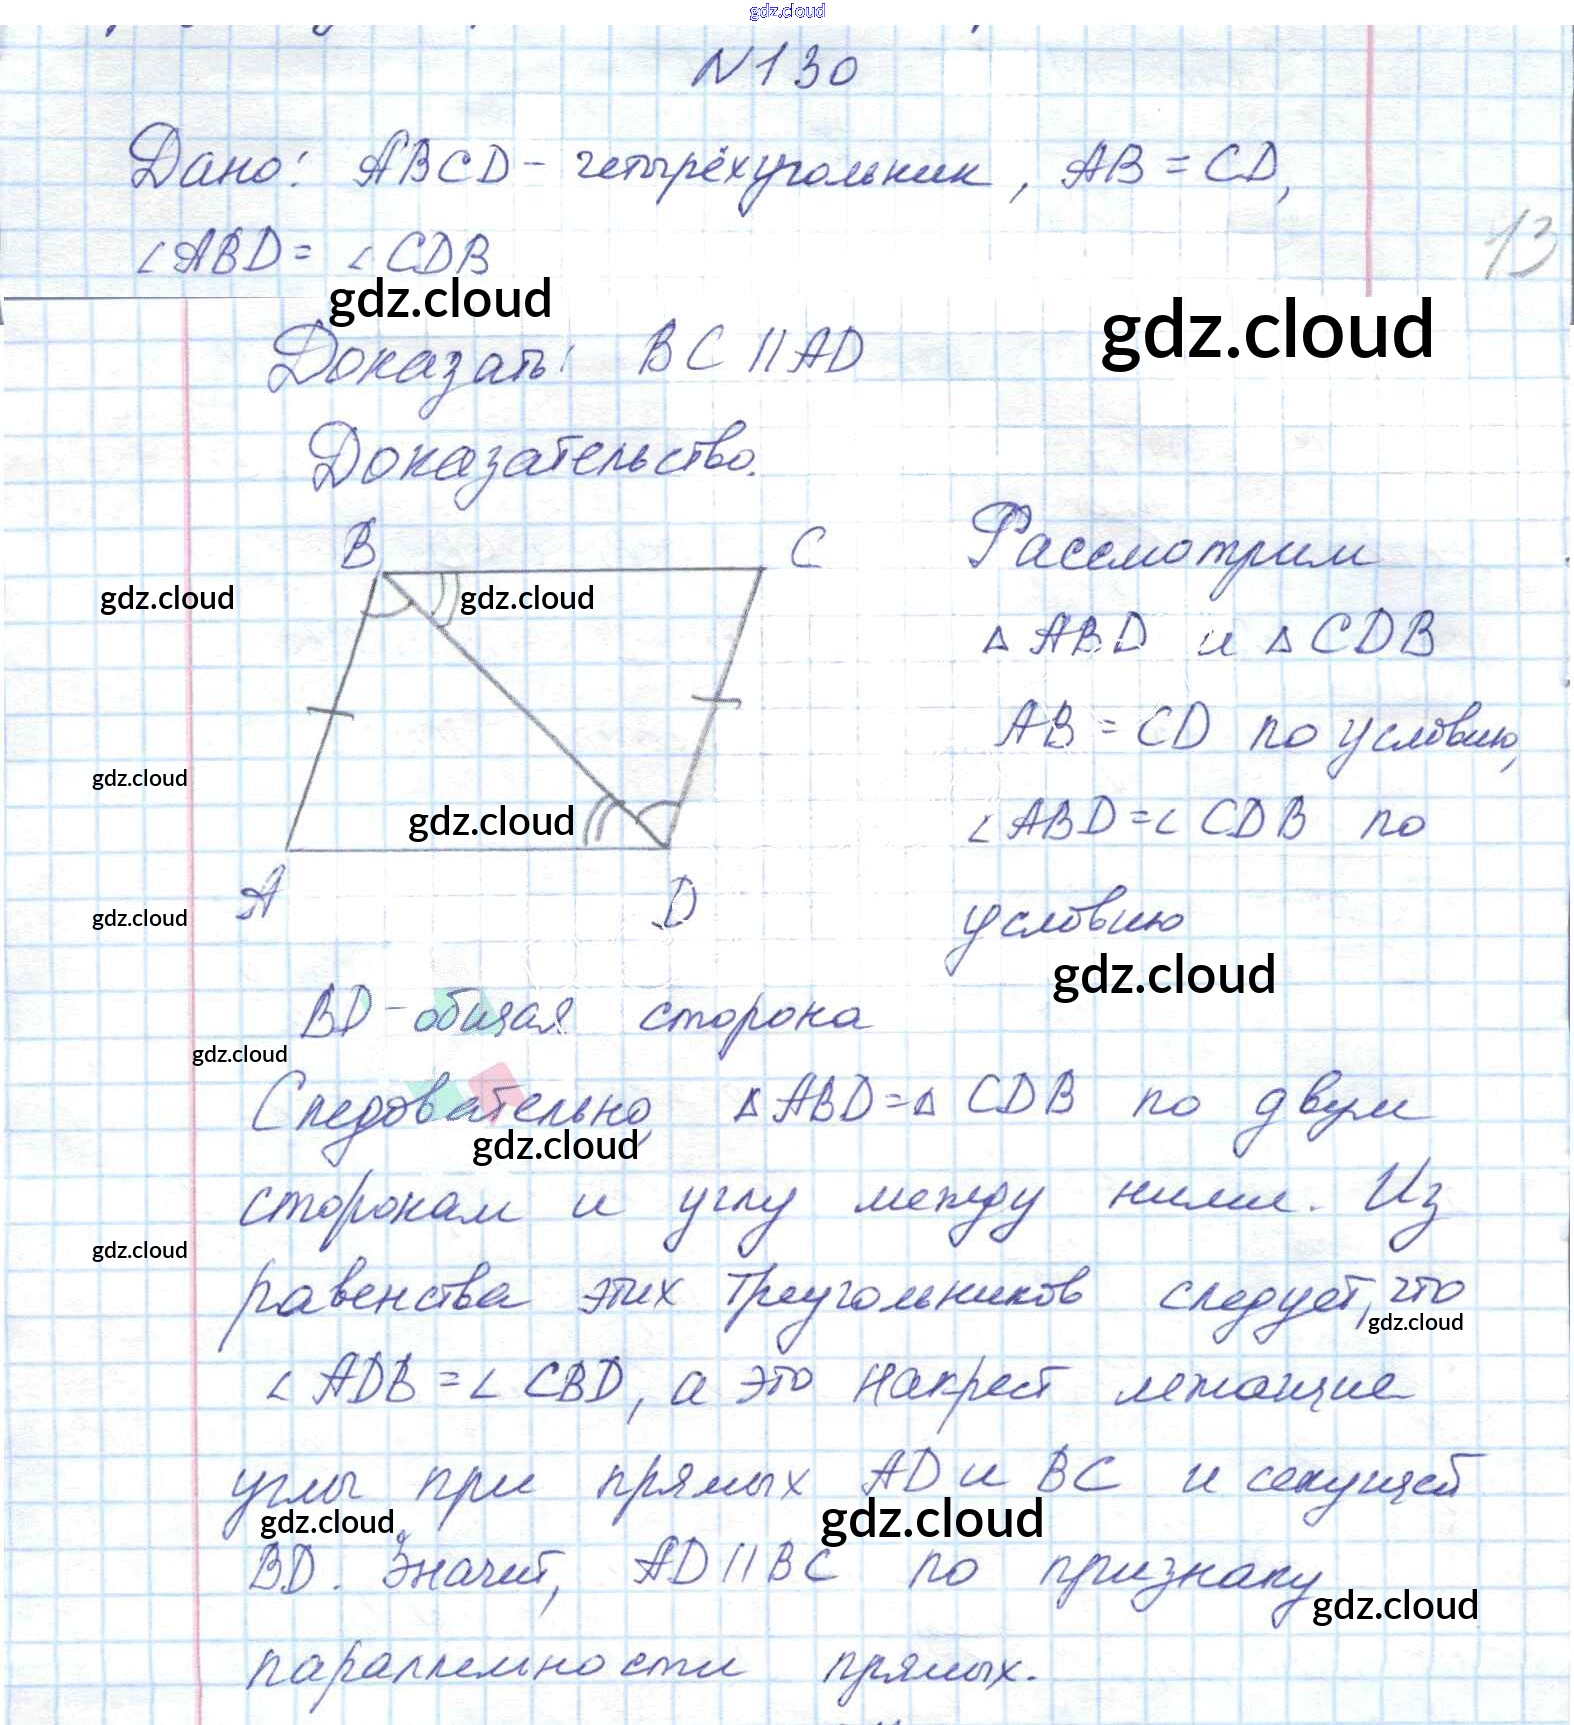 gdz.cloud
N130
Дано: ABCD - четырёхугольник, AB = CD,
13
∠ABD = ∠CDB
gdz.cloud
gdz.cloud
Доказать: BC || AD
Доказательство.
B
C
Рассмотрим
gdz.cloud
gdz.cloud
△ ABD и △ CDB
AB = CD по условию,
gdz.cloud
gdz.cloud
∠ABD = ∠CDB по
A
D
gdz.cloud
условию
gdz.cloud
BD - общая сторона
gdz.cloud
Следовательно, △ABD = △CDB по двум
gdz.cloud
сторонам и углу между ними. Из
gdz.cloud
равенства этих треугольников следует, что
gdz.cloud
∠ADB = ∠CBD, а это накрест лежащие
углы при прямых AD и BC и секущей
gdz.cloud
gdz.cloud
BD. Значит, AD || BC по признаку
gdz.cloud
параллельности прямых.